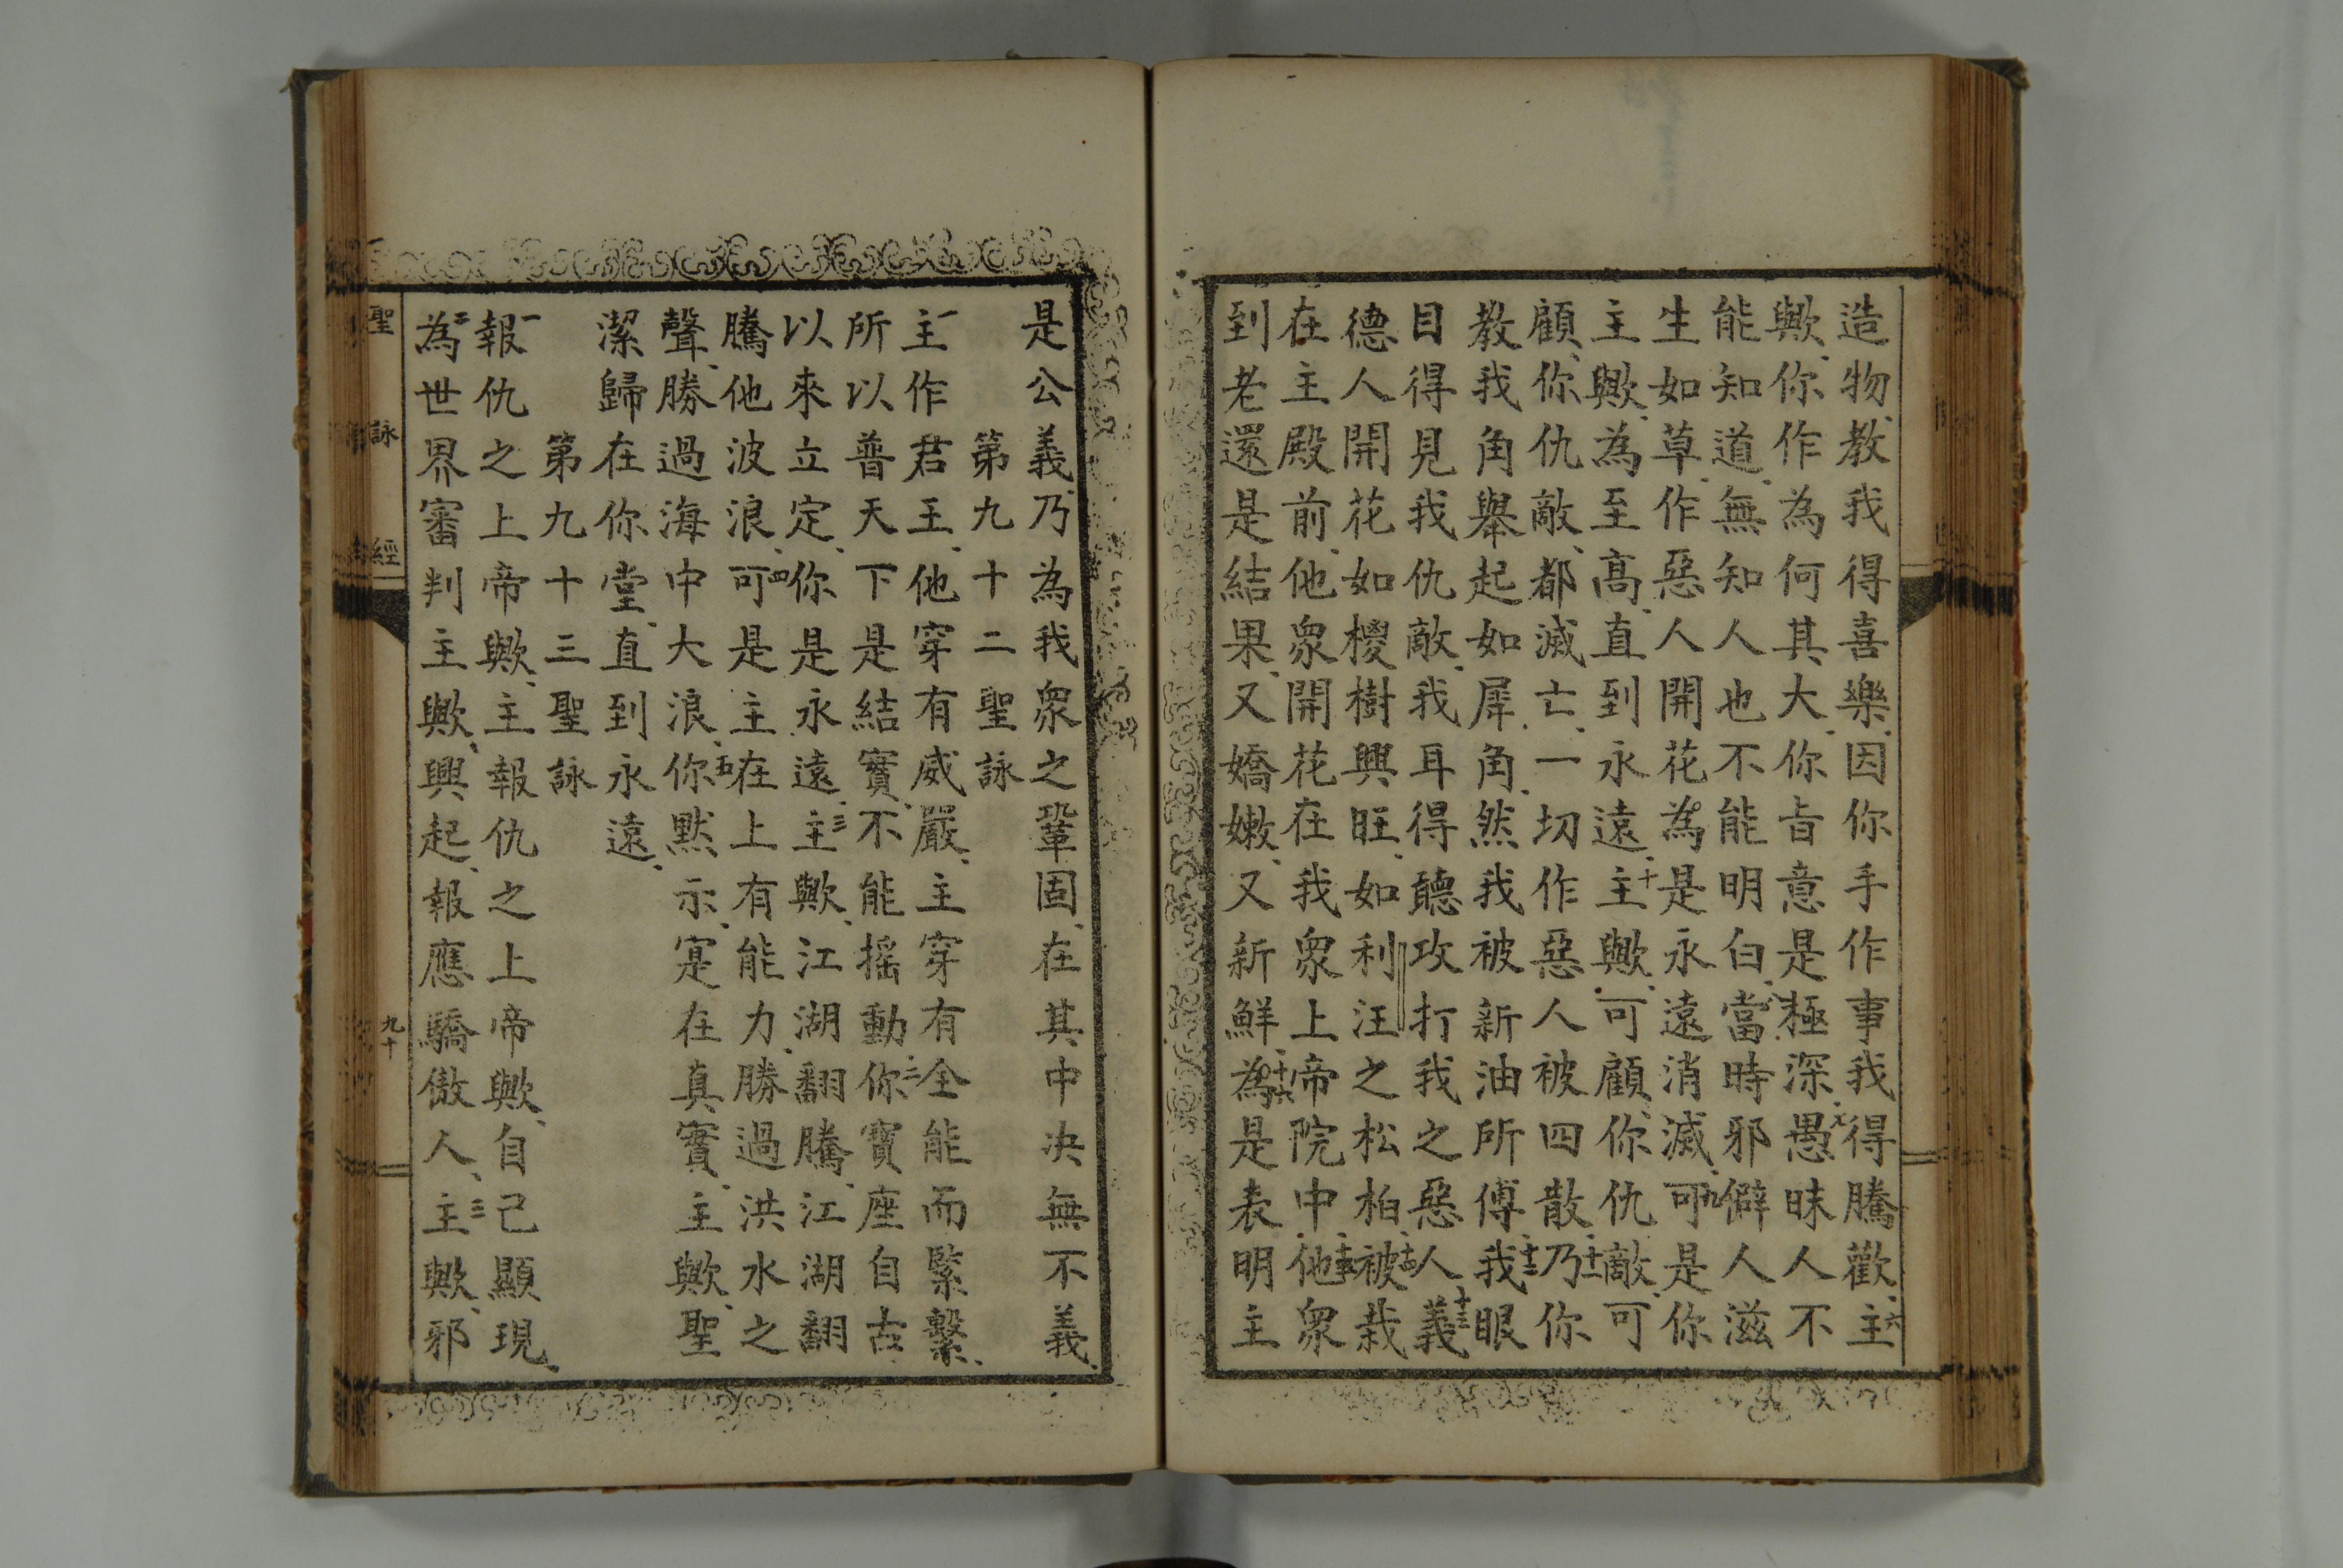 造物、教我得喜樂、因你手作事我得騰歡、六主
歟、你作為何其大、你旨意是極深、七愚昧人不
能知道、無知人也不能明白、八當時邪僻人滋
生如草、作惡人開花、為是永遠消滅、九可是你
主歟、為至高、直到永遠、十主歟、可顧你仇敵、可
顧、你仇敵、都滅亡、一切作惡人被四散、十一乃你
教我角舉起如犀角、然我被新油所傅、十二我眼
目得見我仇敵、我耳得聽攻打我之惡人、十三義
德人開花如椶樹興旺、如利汪之松柏、十四被栽
在主殿前、他眾開花在我眾上帝院中、十五他眾
到老還是結果、又嬌嫩、又新鮮、十六為是表明主
是公義、乃為我眾之鞏固、在其中决無不義、
第九十二聖詠
一主作君王、他穿有威嚴、主穿有全能而緊繫、
所以普天下是結實、不能摇動、二你寶座自古
以來立定、你是永遠、三主歟、江湖翻騰、江湖翻
騰他波浪、四可是主在上有能力、勝過洪水之
聲、勝過海中大浪、五你默示、寔在真實、主歟、聖
潔歸在你堂、直到永遠、
第九十三聖詠
一報仇之上帝歟、主報仇之上帝歟、自己顯現、
二為世界審判主歟、興起、報應驕傲人、三主歟、邪
聖詠經
九十